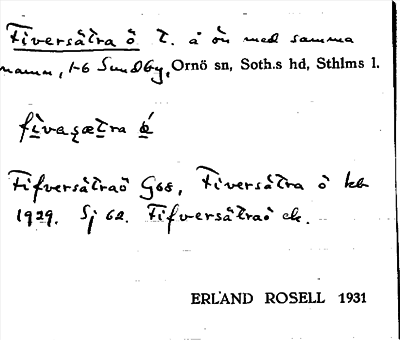 Fiversätra ö t. å ön med samma
namn, 1-6 Sundby, Ornö sn, Soth.s hd, Sthlms l.
fi̱vaʂæt̲ra ö́
Fifversätraö G68, Fiversätra ö kb
1929. Sj 62. Fifversätraö ek.
ERLAND ROSELL 1931